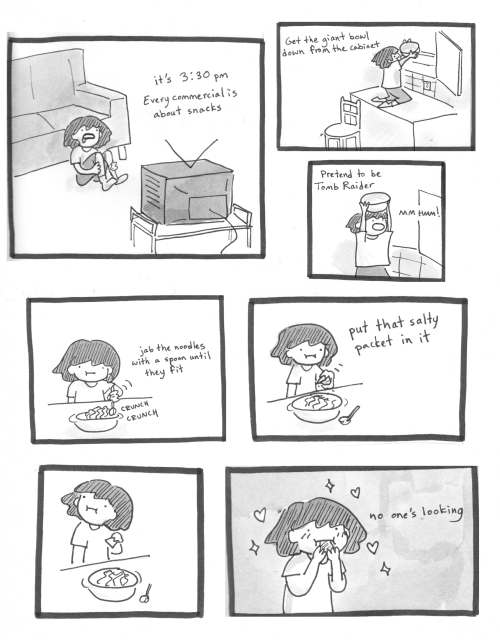 it's 3:30 pm
Every commercial is
about snacks
Get the giant bowl
down from the cabinet
Pretend to be
Tomb Raider
MM HMM!
jab the noodles
with a spoon until
they fit
CRUNCH
CRUNCH
put that salty
packet in it
no one's looking